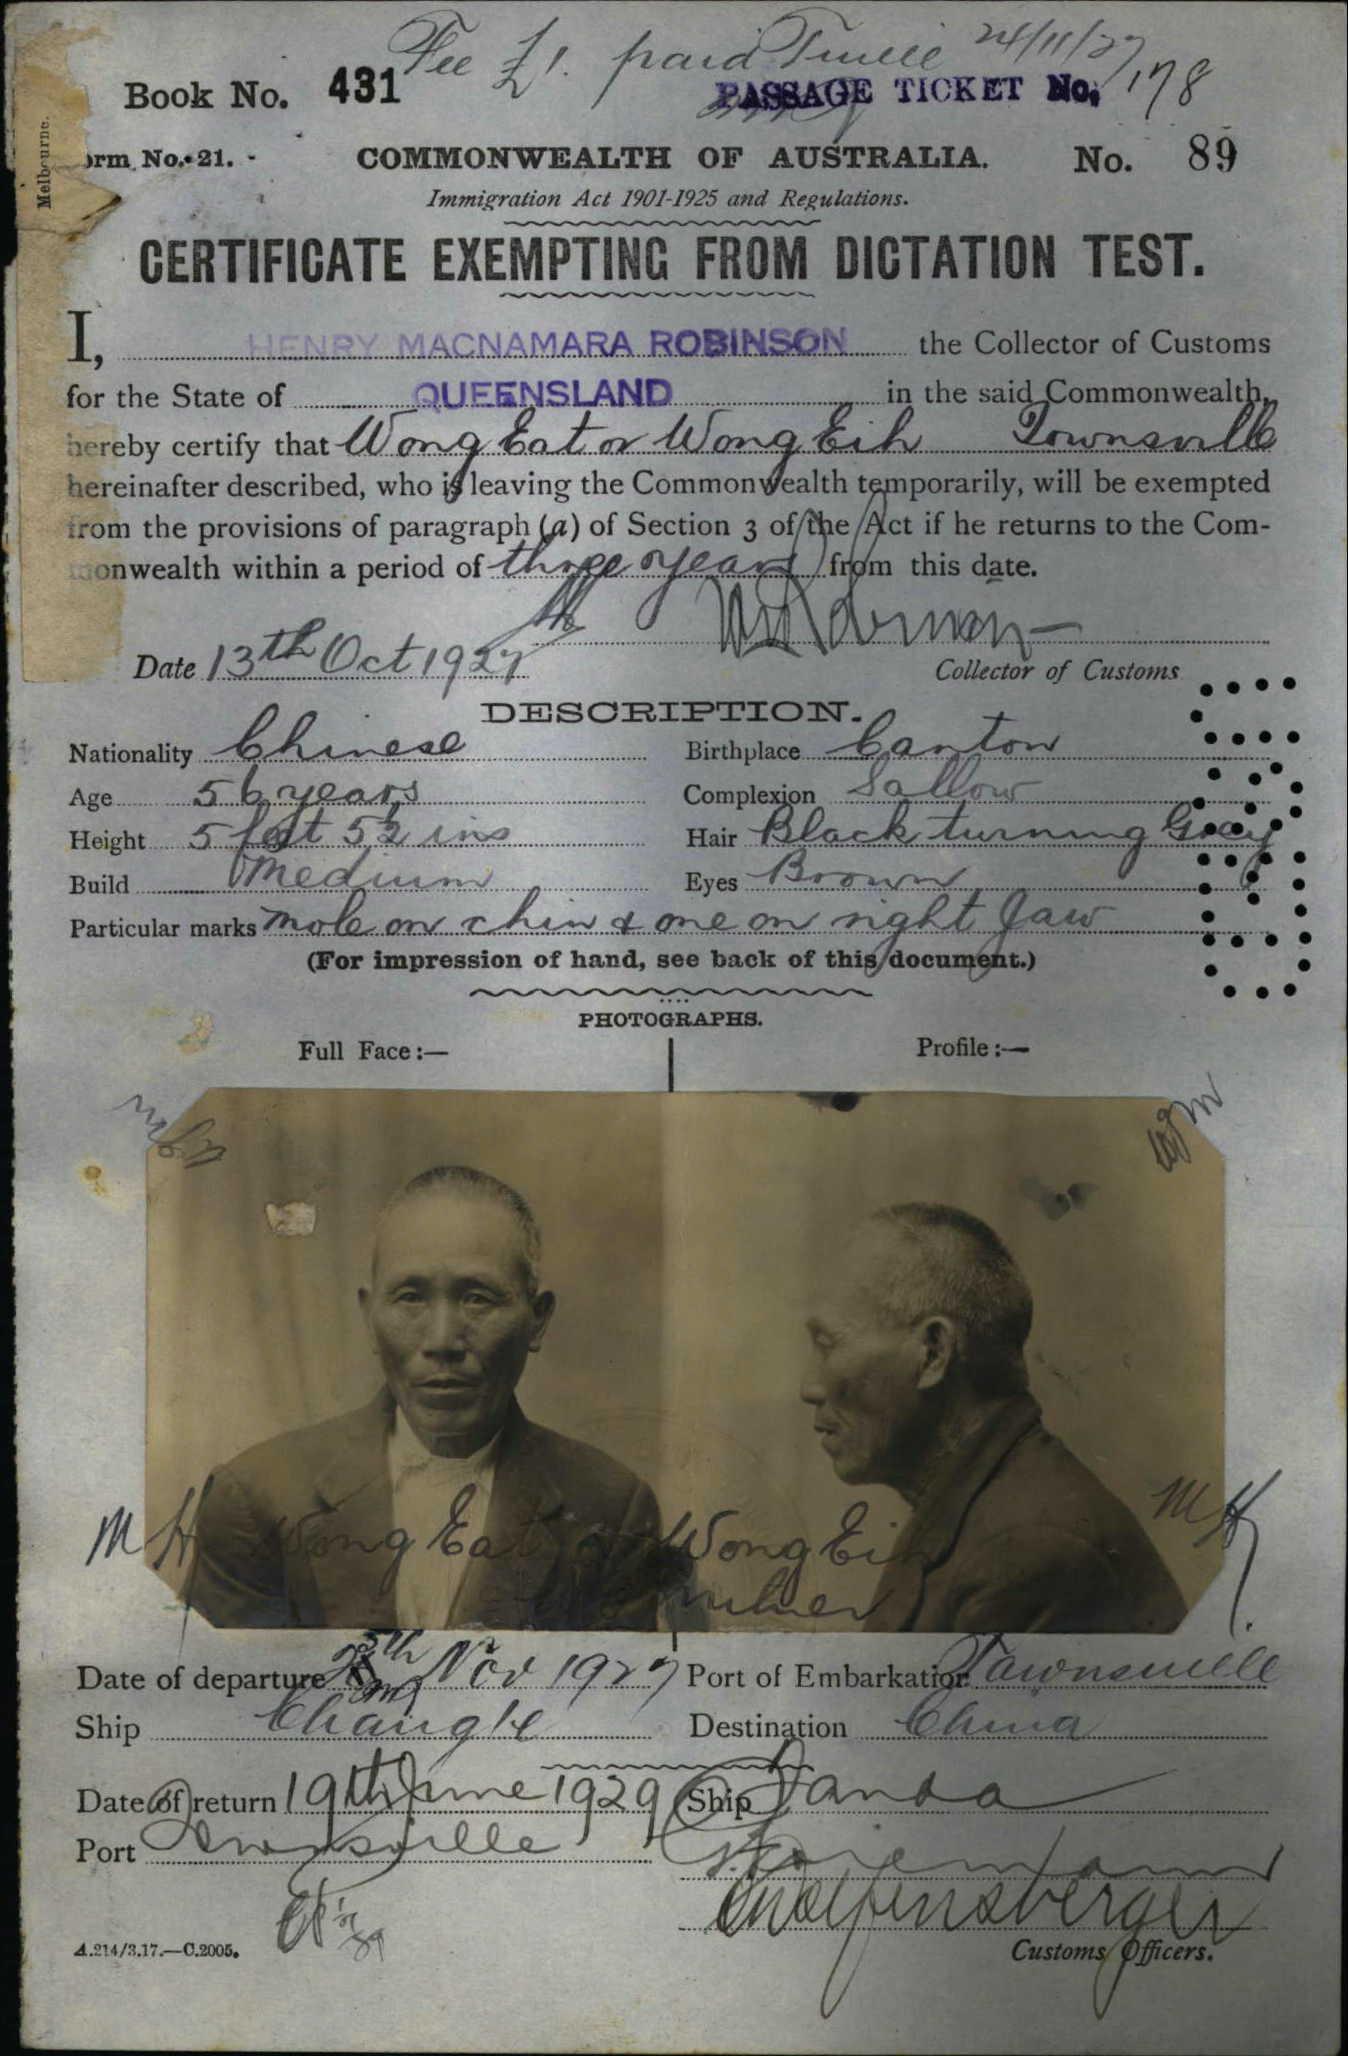 Fee £1. paid 24/11/27
Book No. 431 PASSAGE TICKET No. 178
Melbourne.
orm No. 21. COMMONWEALTH OF AUSTRALIA. No. 89
Immigration Act 1901-1925 and Regulations.
CERTIFICATE EXEMPTING FROM DICTATION TEST.
I, HENRY MACNAMARA ROBINSON the Collector of Customs
for the State of QUEENSLAND in the said Commonwealth,
hereby certify that Wong Eat or Wong Eih Townsville
hereinafter described, who is leaving the Commonwealth temporarily, will be exempted
from the provisions of paragraph (a) of Section 3 of the Act if he returns to the Com-
monwealth within a period of three years from this date.
Date 13th Oct 1927 Collector of Customs
DESCRIPTION.
Nationality Chinese Birthplace Canton
Age 56 years Complexion Sallow
Height 5 feet 5½ ins Hair Black turning Gray
Build Medium Eyes Brown
Particular marks mole on chin & one on right Jaw
(For impression of hand, see back of this document.)
PHOTOGRAPHS.
Full Face:— Profile:—
M H Wong Eat or Wong Eih M H
Date of departure 25th Nov 1927 Port of Embarkation Townsville
Ship Changte Destination China
Date of return 19th June 1929 Ship Tanda
Port Townsville
A.214/3.17.—C.2005. Customs Officers.